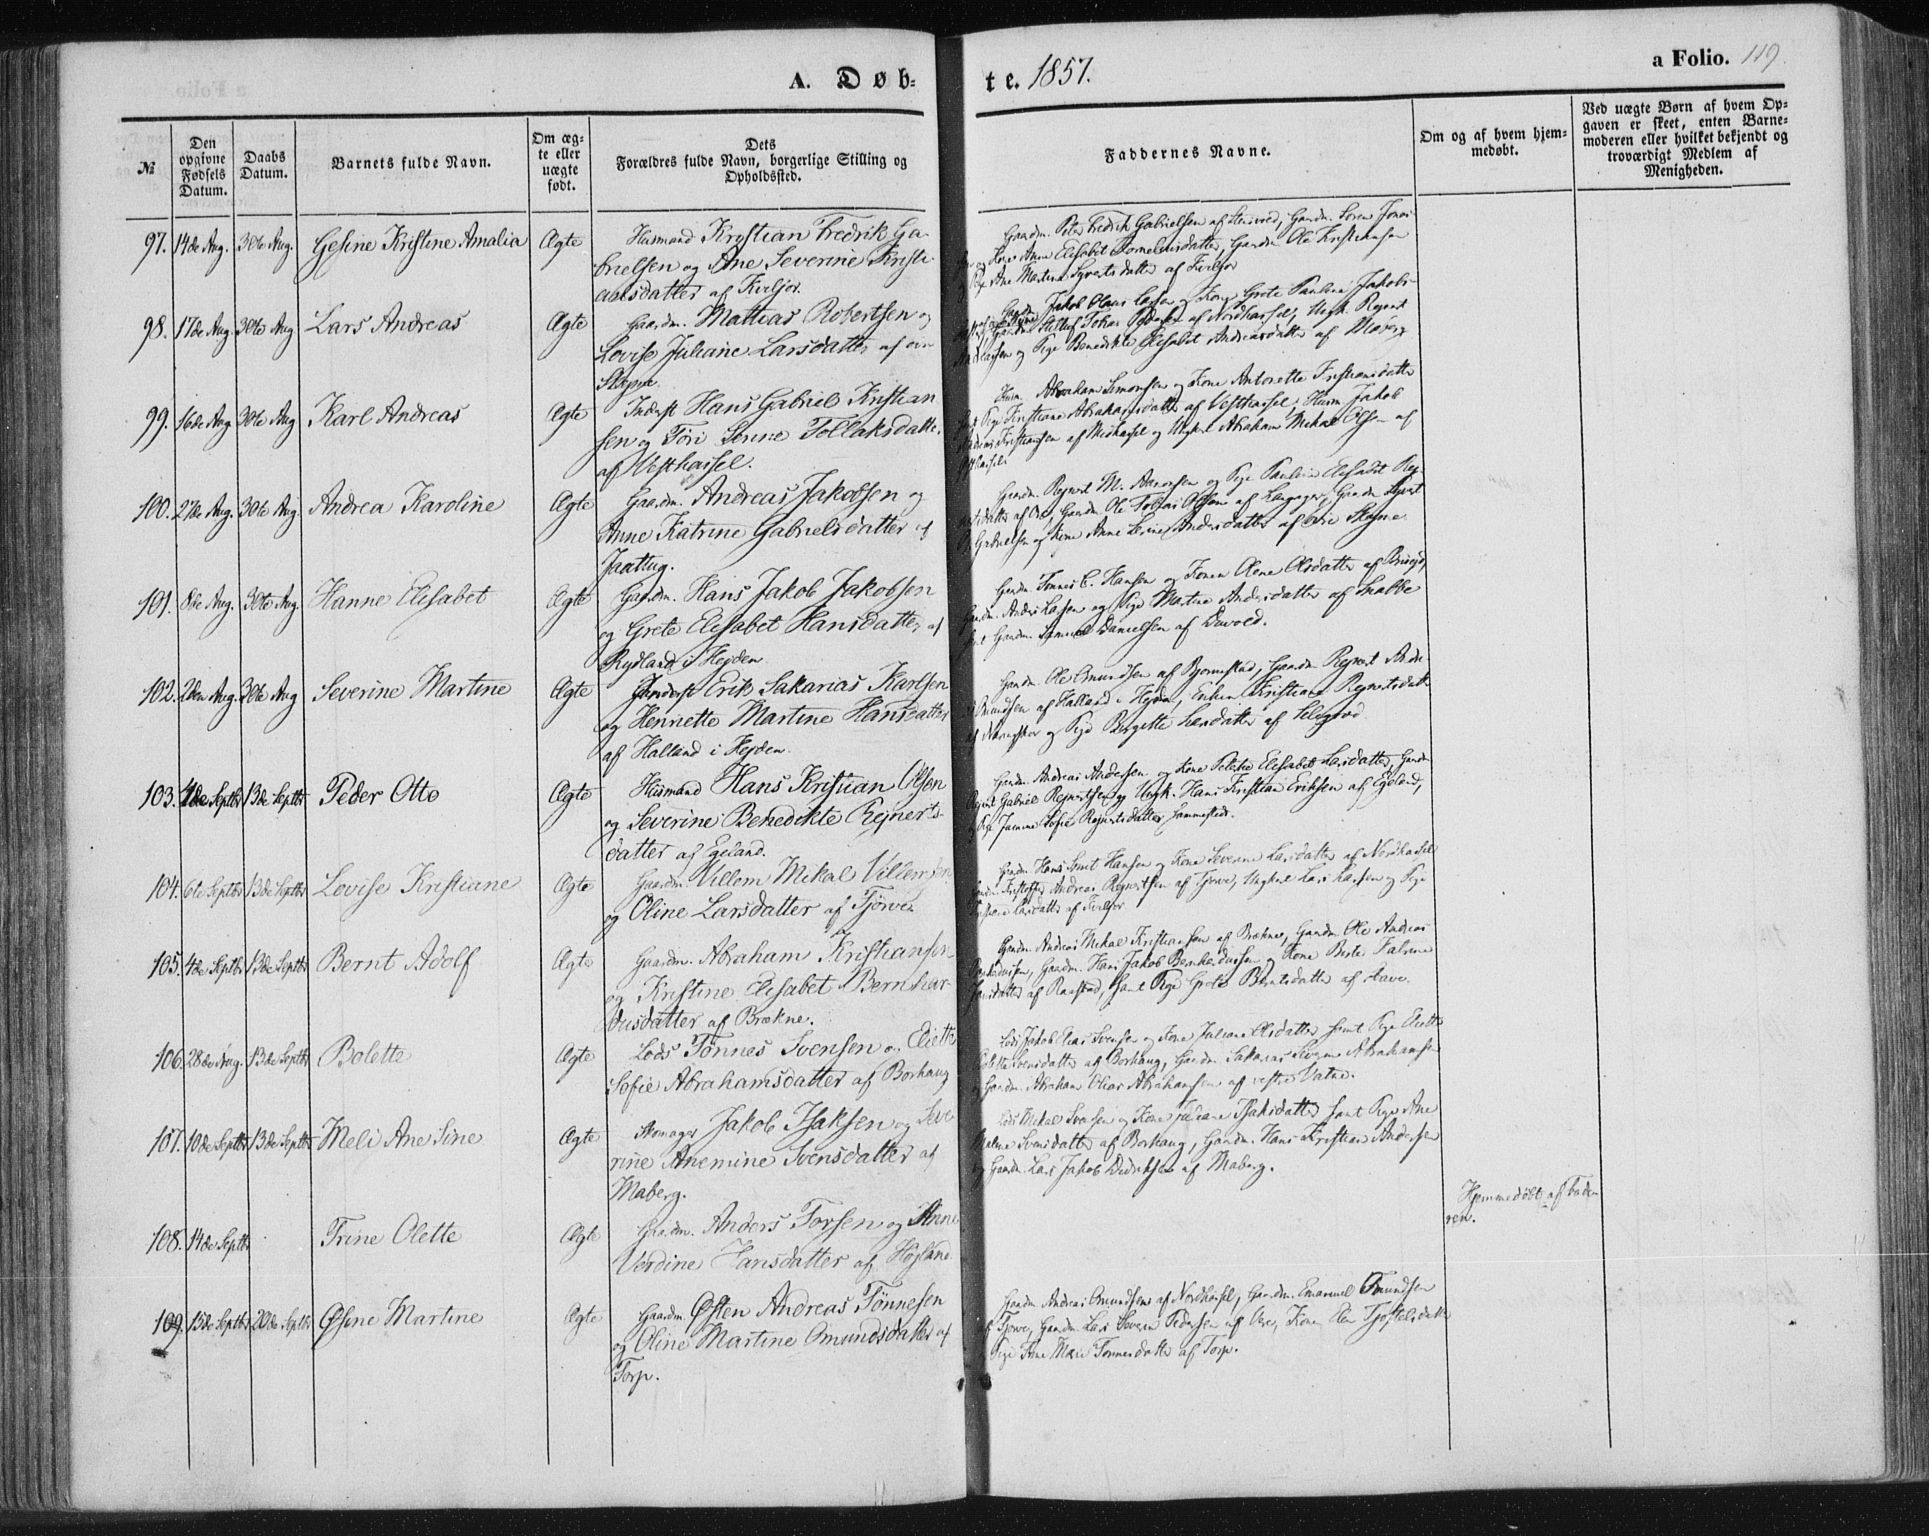 A. Døb-
te. 1857.
a Folio. 119.
№
Den opgivne Fødsels Datum.
Daabs Datum.
Barnets fulde Navn.
Om ægte eller uægte født.
Dets Forældres fulde Navn, borgerlige Stilling og Opholdssted.
Faddernes Navne.
Om og af hvem hjemmedøbt.
Ved uægte Børn af hvem Opgaven er skeet, enten Barnemoderen eller hvilket bekjendt og troværdigt Medlem af Menigheden.
97. 14de Aug. 30te Aug. Gesine Kristine Amalia Ægte Husmand Kristian Fredrik Ga-
brielsen og Ane Severine Kristi-
ansdatter af Kviljor.
Gaardm. Peter Fredrik Gabrielsen af Stensvold, Gaardm. Søren
Kone Anne Elisabet Kornelius datter, Gaardm. Ole Kristiansen
Pige Ane Martine Syvertsdatter af Kviljor
98. 17de Aug. 30te Aug Lars Andreas Ægte Gaardm. Mattias Robertsen og
Lovise Juliane Larsdatter af
Skeime.
Jakob Klaus Larsen og Kone Grete Pauline Jakobs-
Tobias Pedersen af Nordhassel, Ungk. Reinert
og Pige Benedikte Elisabet Andreasdatter af
99. 16de Aug 30te Aug Karl Andreas Ægte Inderst Hans Gabriel Kristian
sen og Tøri Serine Tollaksdatter
af Vesthassel.
Husm. Abraham Simonsen og Kone Antonette Kristiansdatter
samt Pige Kristiane Abrahamsdatter af Vesthassel, Husm. Jakob
Kristiansen af Midhassel og Ungkarl Abraham Mikal Olsen af
Østhassel.
100. 27de Aug. 30te Aug. Andrea Karoline Ægte Gaardm. Andreas Jakobsen og
Anne Katrine Gabrielsdatter af
Jaattug.
Gaardm. Reinert M. Aanensen og Pige Pauline Elisabet Rej-
nertsdatter af Ore, Gaardm. Ole Tobias Olsen af Langager, Gaardm
Gabrielsen og Kone Anne Serine Andersdatter af Skeime.
101. 8de Aug. 30te Aug. Hanne Elisabet Ægte Gaardm. Hans Jakob Jakobsen
og Grete Elisabet Hansdatter af
Rydland i Hejden
Gaardm Tønnes C. Hansen og Konen Olene Olsdatter af
Gaardm. Anders Larsen og Pige Martine Andersdatter af Snabbe
samt Gaardm. Samuel Danielsen af Duvold.
102. 2den Aug. 30te Aug Severine Martine Ægte Inderst Erik Sakarias Karlsen
og Henriette Martine Hansdatter
af Halland i Hejden.
Gaardm. Ole Omundsen af Bjørnestad, Gaardm Rejnert Andr-
Omundsen af Halland i Hejden, Enken Kristiane Rejnertsdatter
og Pige Birgitte Larsdatter af
103. 4de Septbr 13de Septbr Peder Otto Ægte Husmand Hans Kristian Olsen
og Severine Benedikte Rejnerts-
datter af Egeland.
Gaardm. Andreas Andersen og Kone Elisabet Larsdatter, Gaardm
Gabriel Rejnertsen og Ungk. Hans Kristian Eriksen af Egeland,
Pige Sofie Rejnertsdatter,
104. 6te Septbr 13de Septbr Lovise Kristiane Ægte Gaardm. Villem Mikal Villemsen
og Oline Larsdatter af Tjørve.
Gaardm Hans Hansen og Kone Severine Larsdatter af Nordhassel
Andreas Rejnertsen af Tjørve, Ungkarl Lars Larsen og Pige
Larsdatter af Kviljor
105. 4de Septbr 13de Septbr Bernt Adolf Ægte Gaardm. Abraham Kristiansen
og Kristine Elisabet Bernhar-
dusdatter af Brækne.
Gaardm Andreas Mikal Kristiansen af Brækne, Gaardm. Ole Andreas
Bernhardussen, Gaardm. Hans Jakob Bernhardussen og Kone Berte Katrine
af Raastad, samt Pige Grete Berntsdatter af Aave.
106. 28de Aug. 13de Septbr Bolette Ægte Lods Tønnes Svensen og Eliette
Sofie Abrahamsdatter af Borhaug
Lods Jakob Elias Svensen og Kone Juliane Olsdatter samt Pige
Svensdatter af Borhaug, Gaardm. Sakarias Severin Abrahamsen
og Gaardm Abraham Olias Abrahamsen af vestre Vatne.
107. 10de Septbr 13de Septbr Meli Ane Sine Ægte Skomager Jakob Isaksen og Seve
rine Anemine Svensdatter af
Maberg.
Lods Mikal Svensen og Kone Juliane Isaksdatter samt Pige Ane
Malene Svensdatter af Borhaug, Gaardm. Hans Kristian Andersen
og Gaardm Lars Jakob Didriksen af Maberg.
108. 14de Septbr Trine Olette Ægte Gaardm. Anders Torsen og Anne
Verdine Hansdatter af Højland
Hjemmedøbt af Fade-
ren.
109. 15de Septbr 20de Septbr Øsine Martine Ægte Gaardm. Østen Andreas Tønnesen
og Oline Martine Omundsdatter af
Torp.
Gaardm. Andreas Omundsen af Nordhassel, Gaardm. Emanuel Omundsen
af Tjørve, Gaardm Lars Severin Pedersen af Ore, Konen Elen Tjøstelsdatter
og Pige Ane Marie Tønnesdatter af Torp.